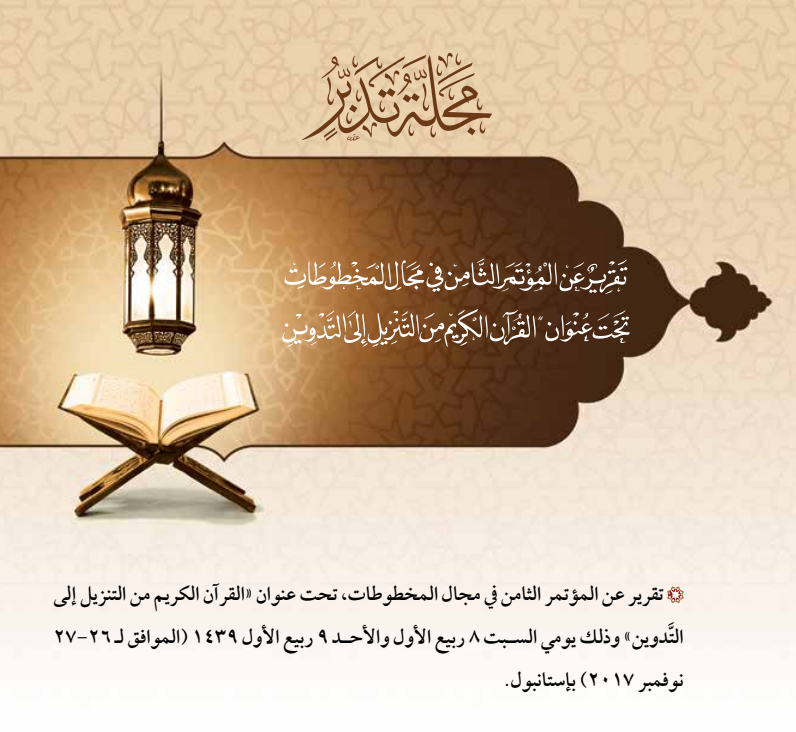 مَجَلَّةُ تَدَبُّرٍ
تَقْرِيرٌ عَنِ الْمُؤْتَمَرِ الثَّامِنِ فِي مَجَالِ الْمَخْطُوطَاتِ
تَحْتَ عُنْوَان "القُرْآن الكَرِيْم مِنَ التَّنْزِيلِ إِلَى التَّدْوِينِ
تقرير عن المؤتمر الثامن في مجال المخطوطات، تحت عنوان «القرآن الكريم من التنزيل إلى
التَّدوين» وذلك يومي السـبت ٨ ربيع الأول والأحـــد ٩ ربيع الأول ١٤٣٩ (الموافق لـ ٢٦-٢٧
نوفمبر ٢٠١٧) بإستانبول.